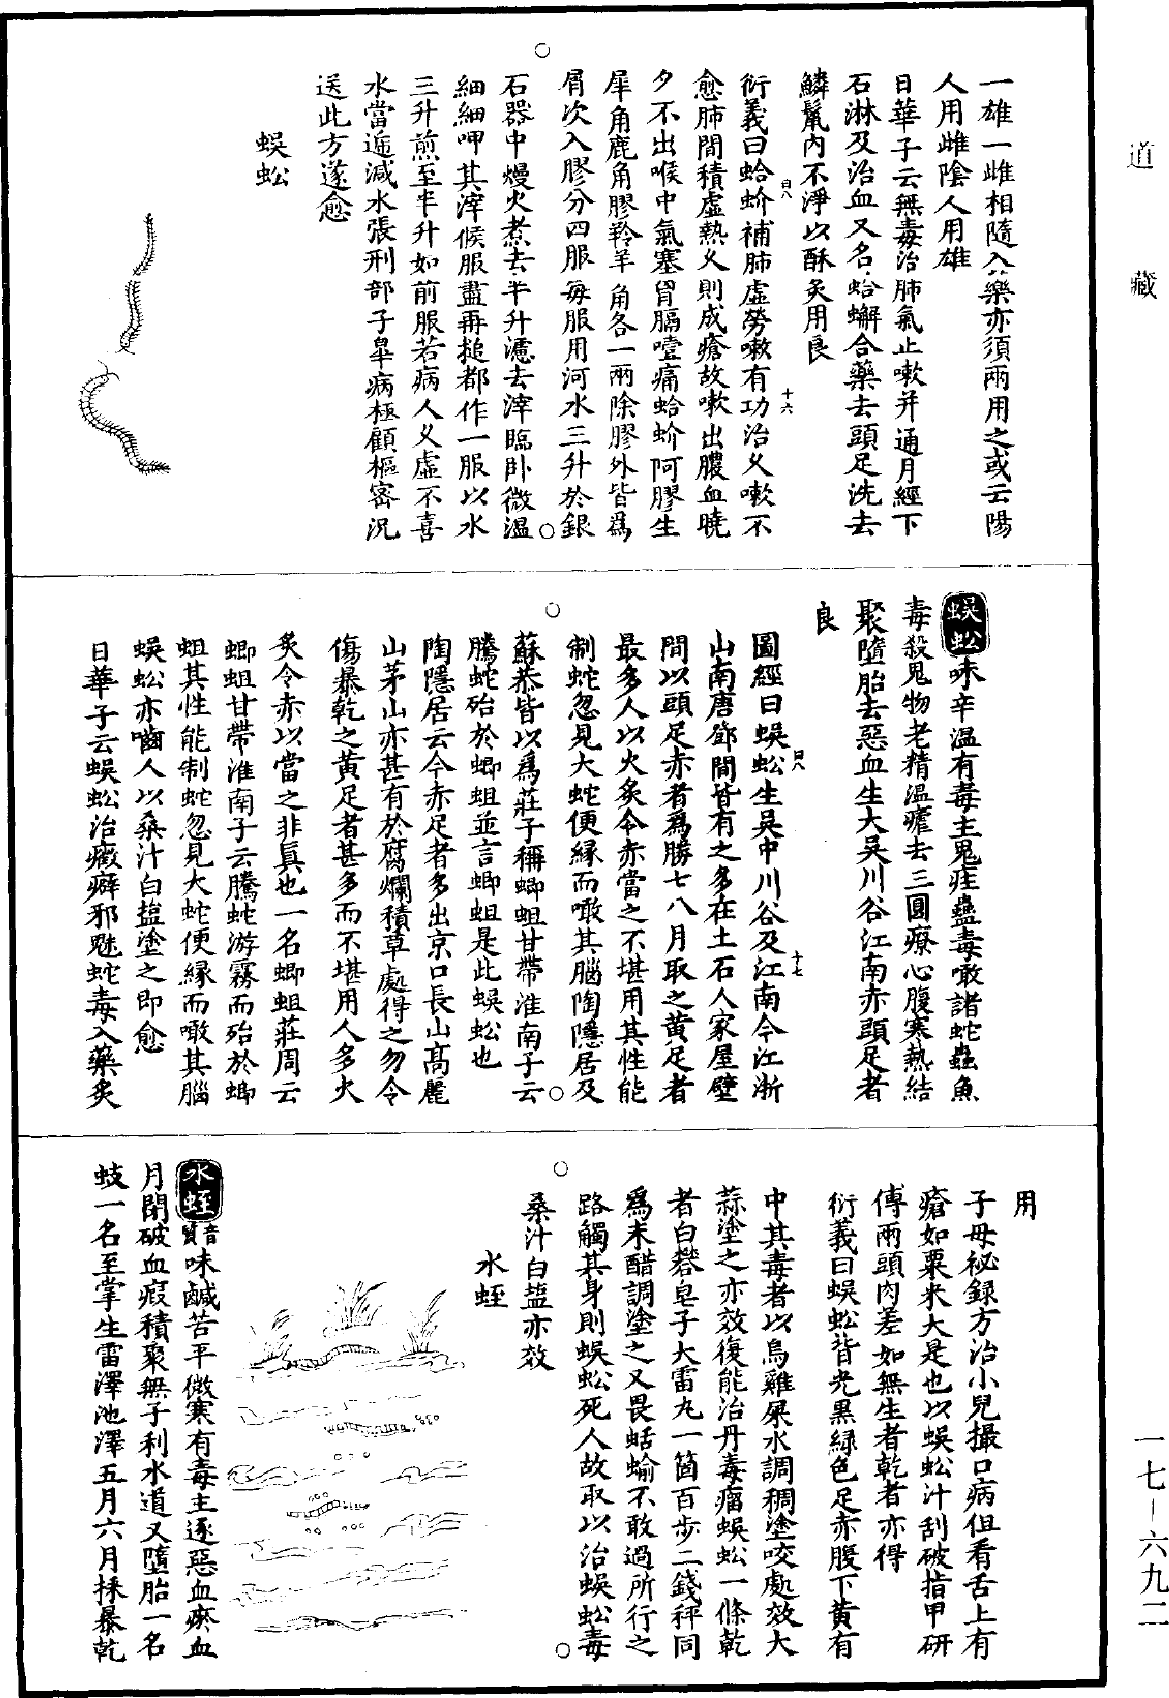 道藏
一雄一雌相隨入藥亦須兩用之或云陽
人用雌陰人用雄
日華子云無毒治肺氣止嗽并通月經下
石淋及治血又名蛤蠏合藥去頭足洗去
鱗鬣內不淨以酥炙用良
衍義曰蛤蚧補肺虛勞嗽有功治久嗽不
愈肺間積虛熱久則成瘡故嗽出膿血曉
夕不出喉中氣塞胷膈噎痛蛤蚧阿膠生
犀角鹿角膠羚羊角各一兩除膠外皆爲
屑次入膠分四服每服用河水三升於銀
石器中熳火煮去半升濾去滓臨卧微溫
細細呷其滓候服盡再搥都作一服以水
三升煎至半升如前服若病人久虛不喜
水當遞減水張刑部子皐病極顧樞密況
送此方遂愈
蜈蚣
曰八
十六
蜈蚣味辛溫有毒主鬼疰蠱毒噉諸蛇蟲魚
毒殺鬼物老精溫瘧去三圓療心腹寒熱結
聚墮胎去惡血生大吳川谷江南赤頭足者
良
圖經曰蜈蚣生吳中川谷及江南今江浙
山南唐鄧間皆有之多在土石人家屋壁
間以頭足赤者爲勝七八月取之黃足者
最多人以火炙令赤當之不堪用其性能
制蛇忽見大蛇便緣而噉其腦陶隱居及
蘇恭皆以爲莊子稱蝍蛆甘帶淮南子云
騰蛇殆於蝍蛆並言蝍蛆是此蜈蚣也
陶隱居云今赤足者多出京口長山高麗
山茅山亦甚有於腐爛積草處得之勿令
傷暴乾之黃足者甚多而不堪用人多火
炙令赤以當之非眞也一名蝍蛆莊周云
蝍蛆甘帶淮南子云騰蛇游霧而殆於蝍
蛆其性能制蛇忽見大蛇便緣而噉其腦
蜈蚣亦嚙人以桑汁白盐塗之即愈
日華子云蜈蚣治癥癖邪魅蛇毒入藥炙
曰八
十七
用
子母祕録方治小兒撮口病但看舌上有
瘡如粟米大是也以蜈蚣汁刮破指甲研
傅兩頭肉差如無生者乾者亦得
衍義曰蜈蚣背光黑緑色足赤腹下黃有
中其毒者以烏雞屎水調稠塗咬處效大
蒜塗之亦效復能治丹毒瘤蜈蚣一條乾
者白礬皂子大雷丸一箇百步二錢秤同
爲末醋調塗之又畏蛞蝓不敢過所行之
路觸其身則蜈蚣死人故取以治蜈蚣毒
桑汁白盐亦效
水蛭
水蛭音質味鹹苦平微寒有毒主逐惡血瘀血
月閉破血瘕積聚無子利水道又墮胎一名
蚑一名至掌生雷澤池澤五月六月採暴乾
一七-六九二